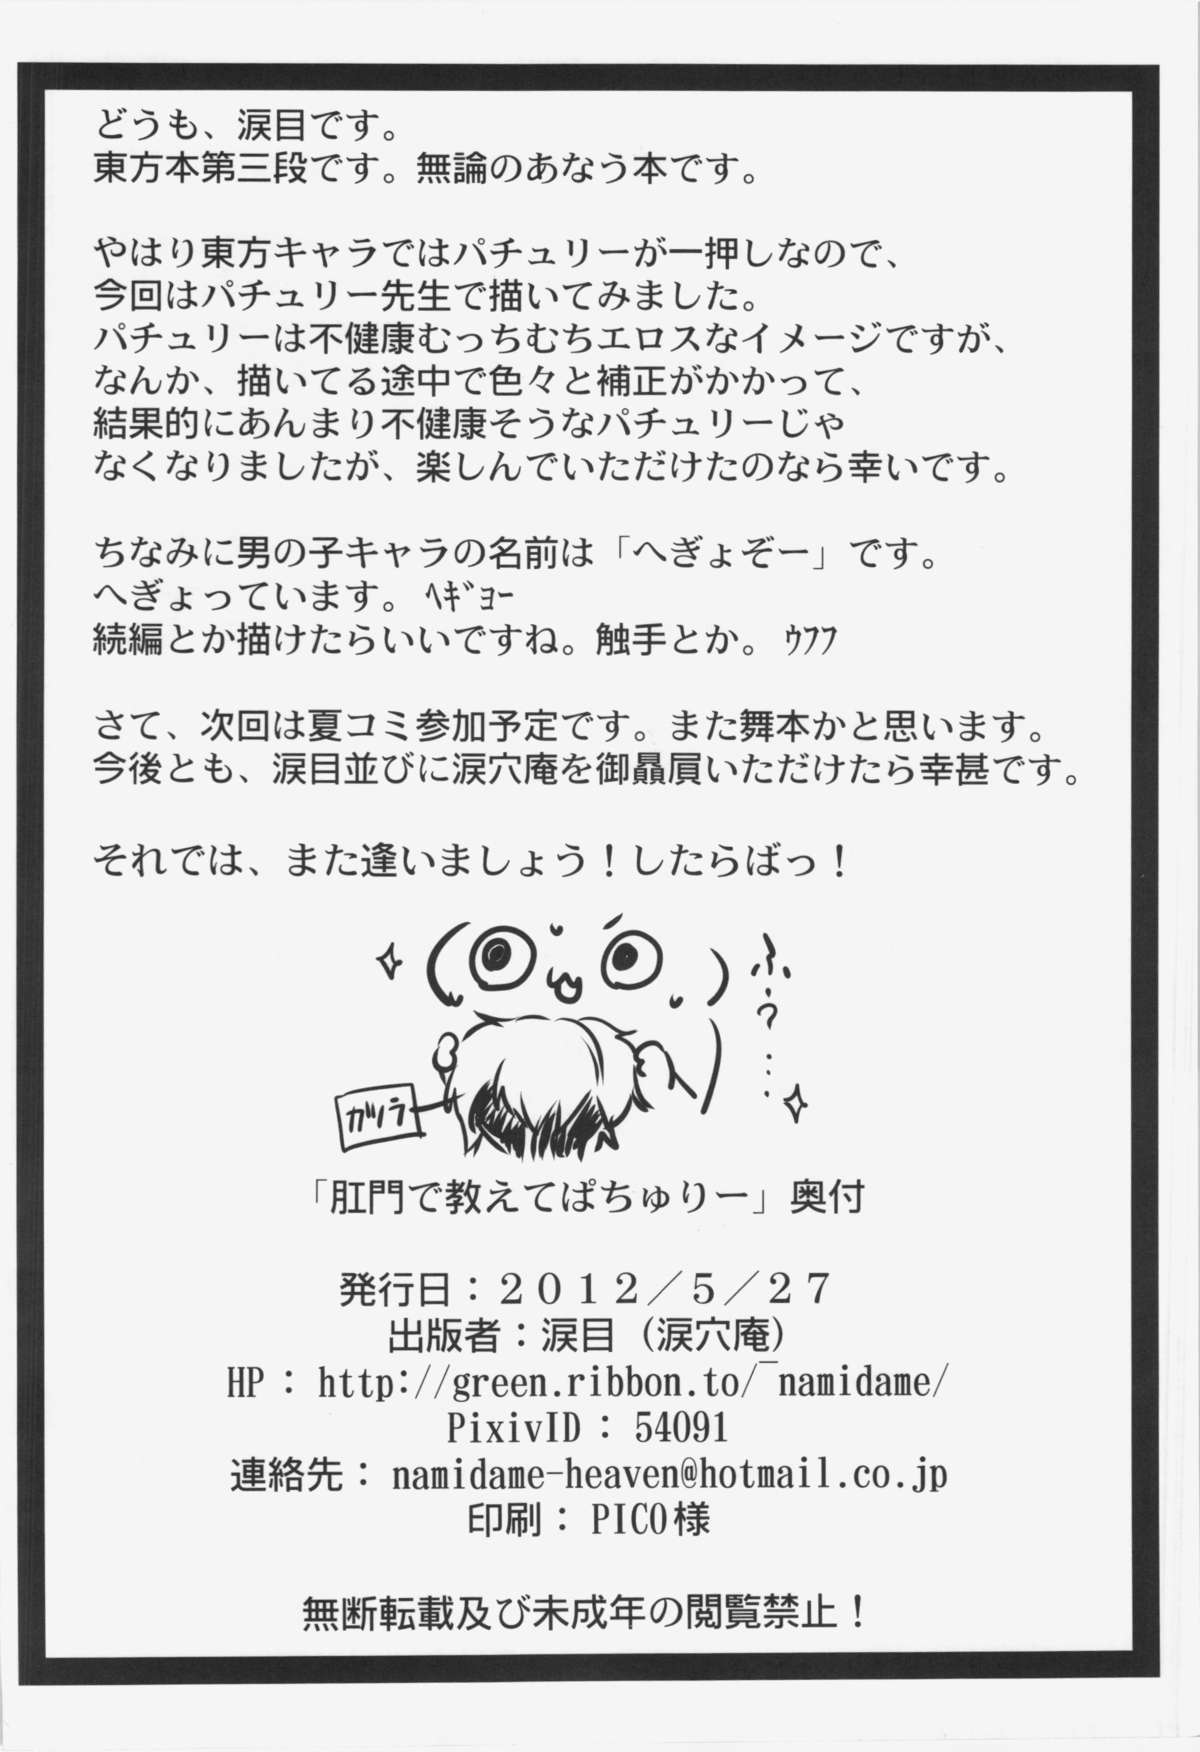 どうも、涙目です。
東方本第三段です。無論のあなう本です。
やはり東方キャラではパチュリーが一押しなので、
今回はパチュリー先生で描いてみました。
パチュリーは不健康むっちむちエロスなイメージですが、
なんか、描いてる途中で色々と補正がかかって、
結果的にあんまり不健康そうなパチュリーじゃ
なくなりましたが、楽しんでいただけたのなら幸いです。
ちなみに男の子キャラの名前は「へぎょぞー」です。
へぎょっています。ﾍｷﾞｮｰ
続編とか描けたらいいですね。触手とか。ｳﾌﾌ
さて、次回は夏コミ参加予定です。また舞本かと思います。
今後とも、涙目並びに涙穴庵を御贔屓いただけたら幸甚です。
それでは、また逢いましょう！したらばっ！
ふ・？・・・
ガノラ
「肛門で教えてぱちゅりー」奥付
発行日：２０１２／５／２７
出版者：涙目（涙穴庵）
HP：http://green.ribbon.to/~namidame/
PixivID：54091
連絡先：namidame-heaven@hotmail.co.jp
印刷：PICO様
無断転載及び未成年の閲覧禁止！